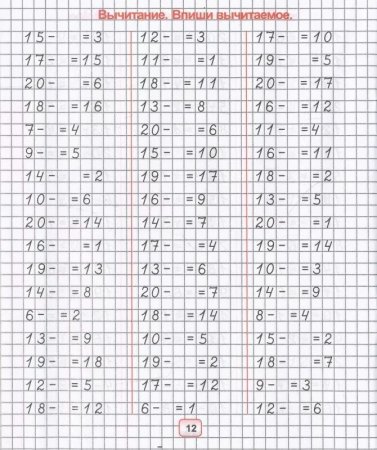 Вычитание. Впиши вычитаемое.
15- =3 12- =3 17- =10
17- =15 11- =1 19- =5
20- =6 18- =11 20- =17
18- =16 13- =8 16- =12
7- =4 20- =6 11- =4
9- =5 15- =10 16- =11
14- =2 19- =17 18- =2
10- =6 16- =9 13- =5
20- =14 14- =7 20- =1
16- =1 17- =4 19- =14
19- =13 13- =6 10- =3
14- =8 20- =7 14- =9
6- =2 18- =14 8- =4
13- =9 10- =5 15- =2
19- =18 19- =2 18- =7
12- =5 17- =12 9- =3
18- =12 6- =1 12- =6
12